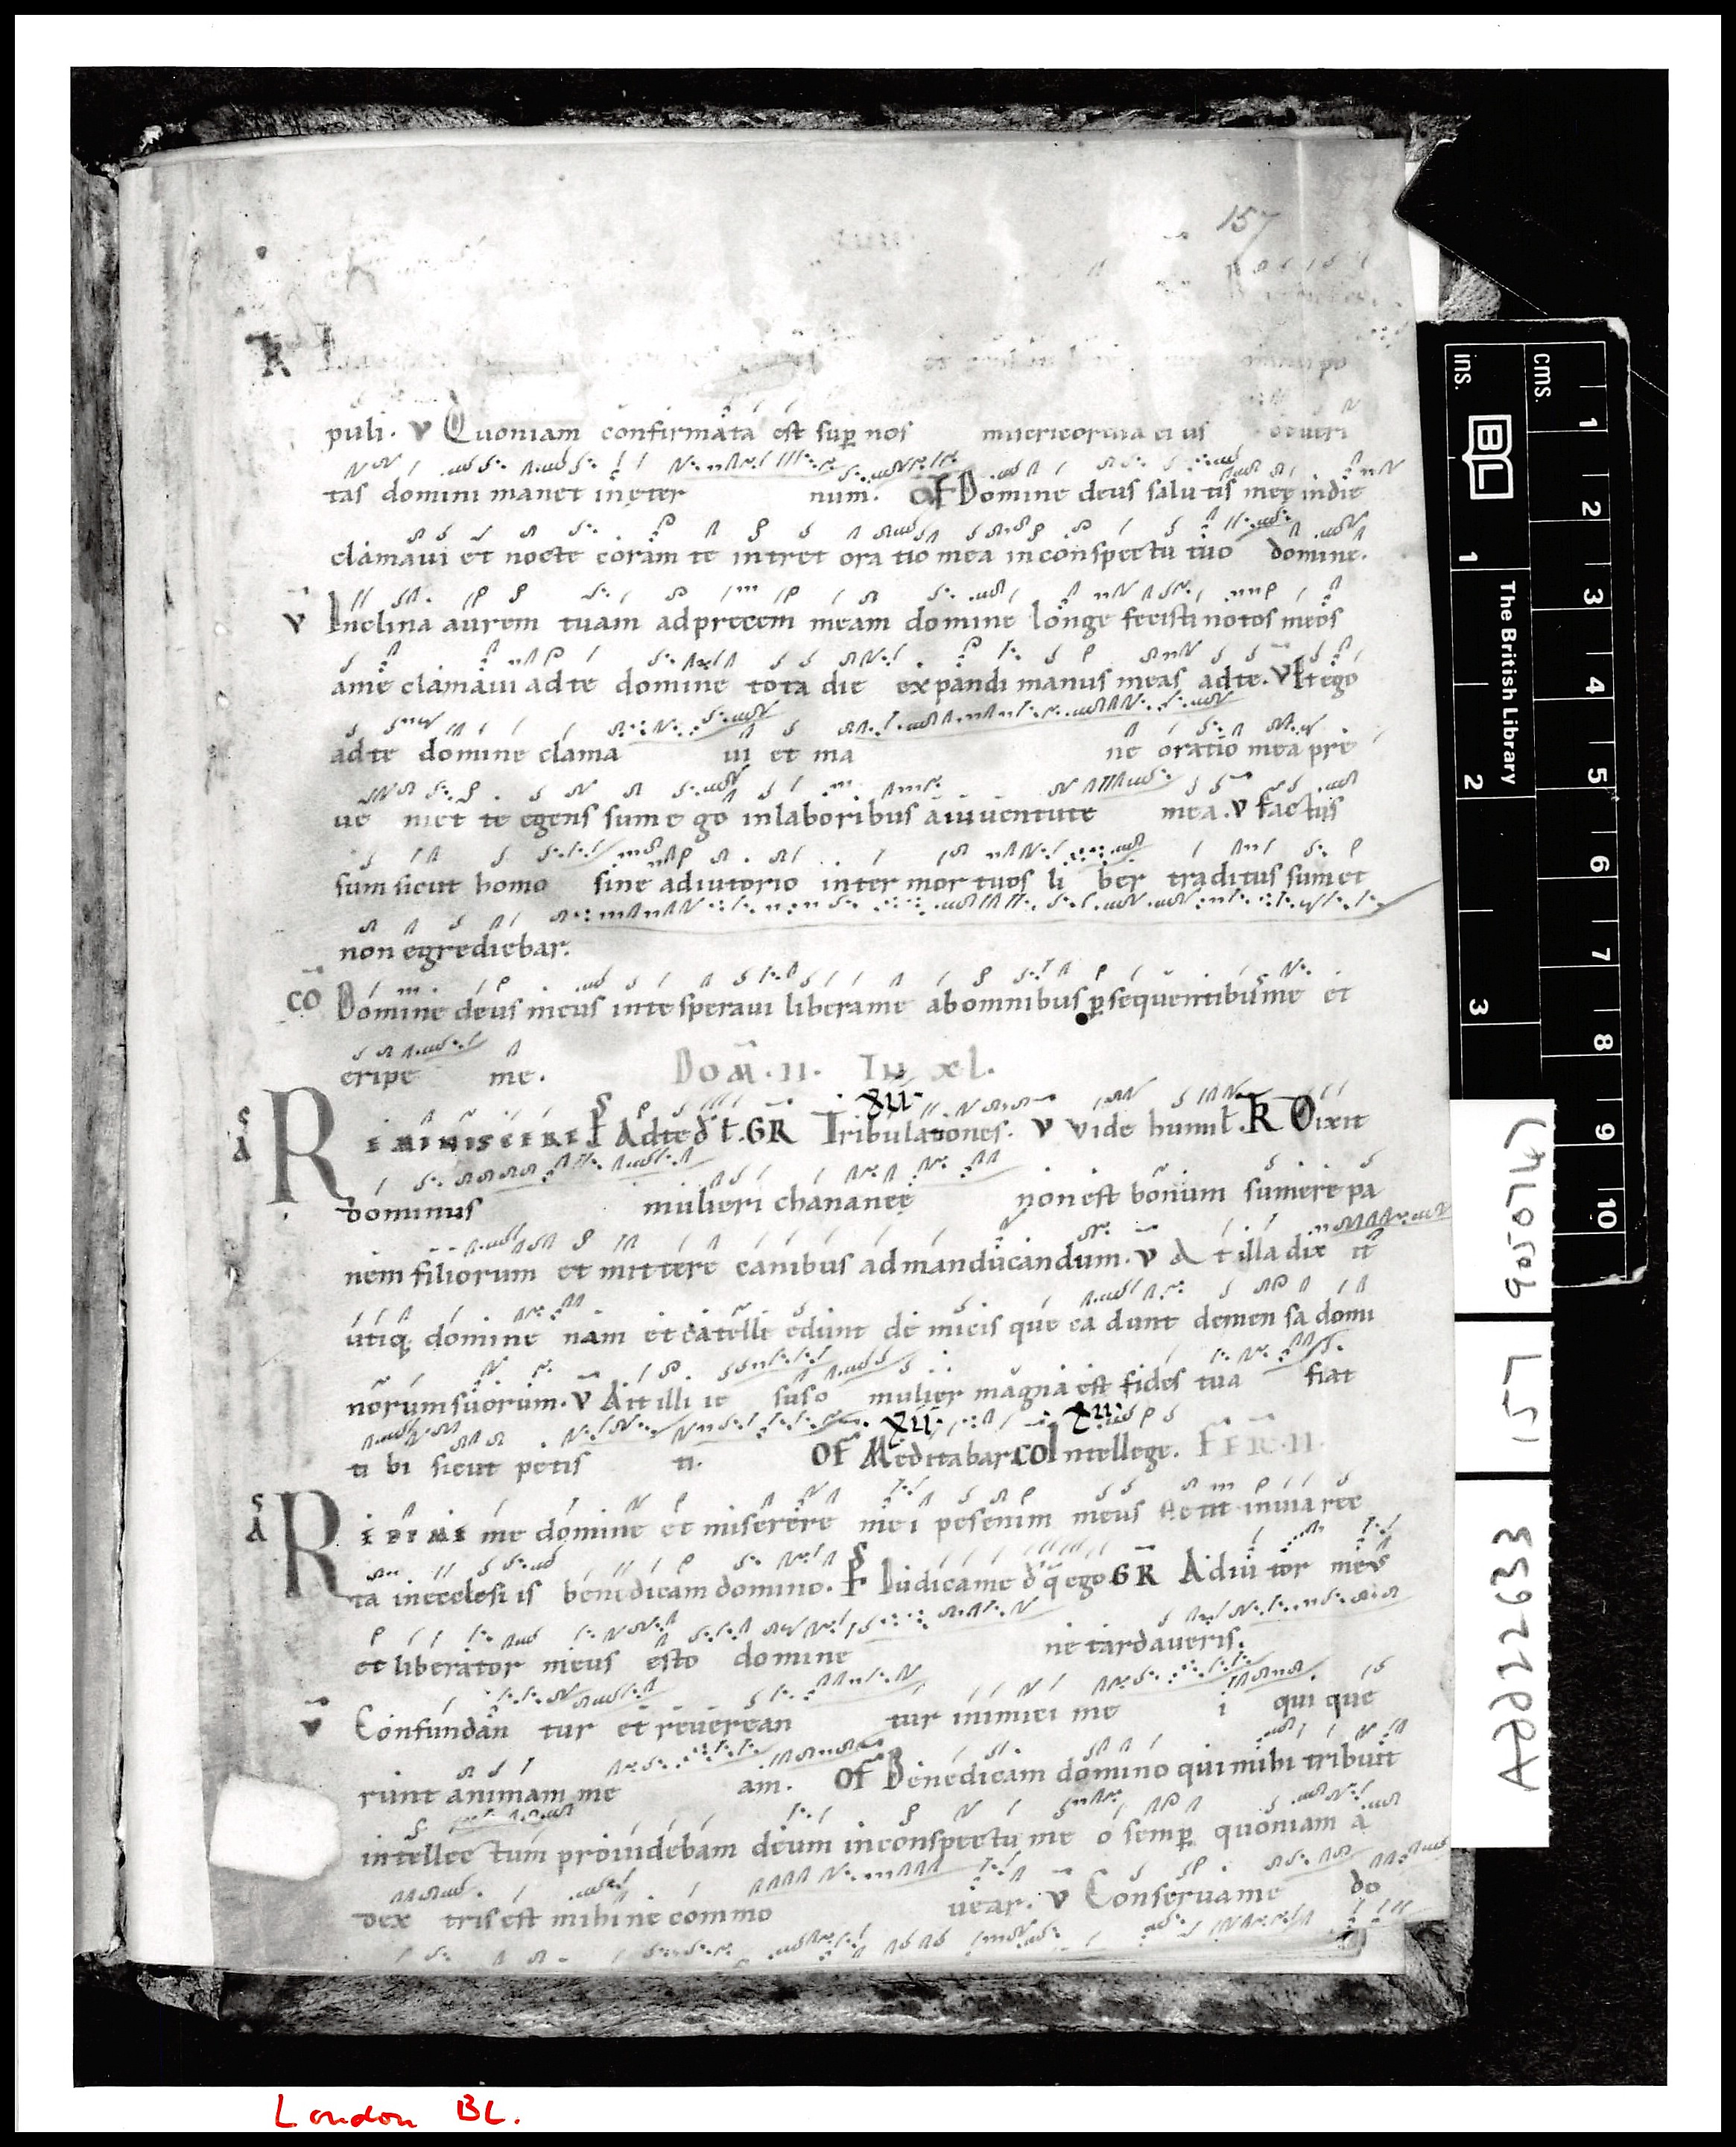 157
puli. v Quoniam confirmata est sup nos misericordia ei us et veri
tas domini manet in ęter num. of Domine deus salutis meę in die
clamaui et nocte coram te intret ora tio mea in conspectu tuo domine.
v Inclina aurem tuam ad precem meam domine longe fecisti notos meos
a me clamaui ad te domine tota die expandi manus meas ad te. v Et ego
ad te domine clama ui et ma ne oratio mea pre
ue niet te egens sum ego in laboribus a iuuentute mea. v factus
sum sicut homo sine adiutorio inter mor tuos li ber traditus sum et
non egrediebar.
co Domine deus meus in te speraui libera me ab omnibus psequentibus me et
eripe me. Dom. II. In xl.
A Reminiscere Ps Ad te d l. GR Tribulationes. XII v vide humil. R Dixit
dominus mulieri chananeę non est bonum sumere pa
nem filiorum et mittere canibus ad manducandum. v At illa dix it
utiq domine nam et catelli edunt de micis que ca dunt de men sa domi
norum suorum. v Ait illi ie sus o mulier magna est fides tua fiat
ti bi sicut petis ti. of Meditabar XII co Intellege. XII FER. II.
A Redime me domine et miserere me i pes enim meus stetit in uia rec
ta in ecclesi is benedicam domino. Ps Iudica me d q ego GR Adiu tor meus
et liberator meus esto domine ne tardaueris.
v Confundan tur et reuerean tur inimici me i qui que
runt animam me am. of Benedicam domino qui mihi tribuit
intellec tum prouidebam deum in conspectu me o semp quoniam a
dex tris est mihi ne commo uear. v Conserua me do
ins.
cms.
BL
The British Library
1
2
3
1
2
3
4
5
6
7
8
9
10
9050747
157
Add 22633
London BL.